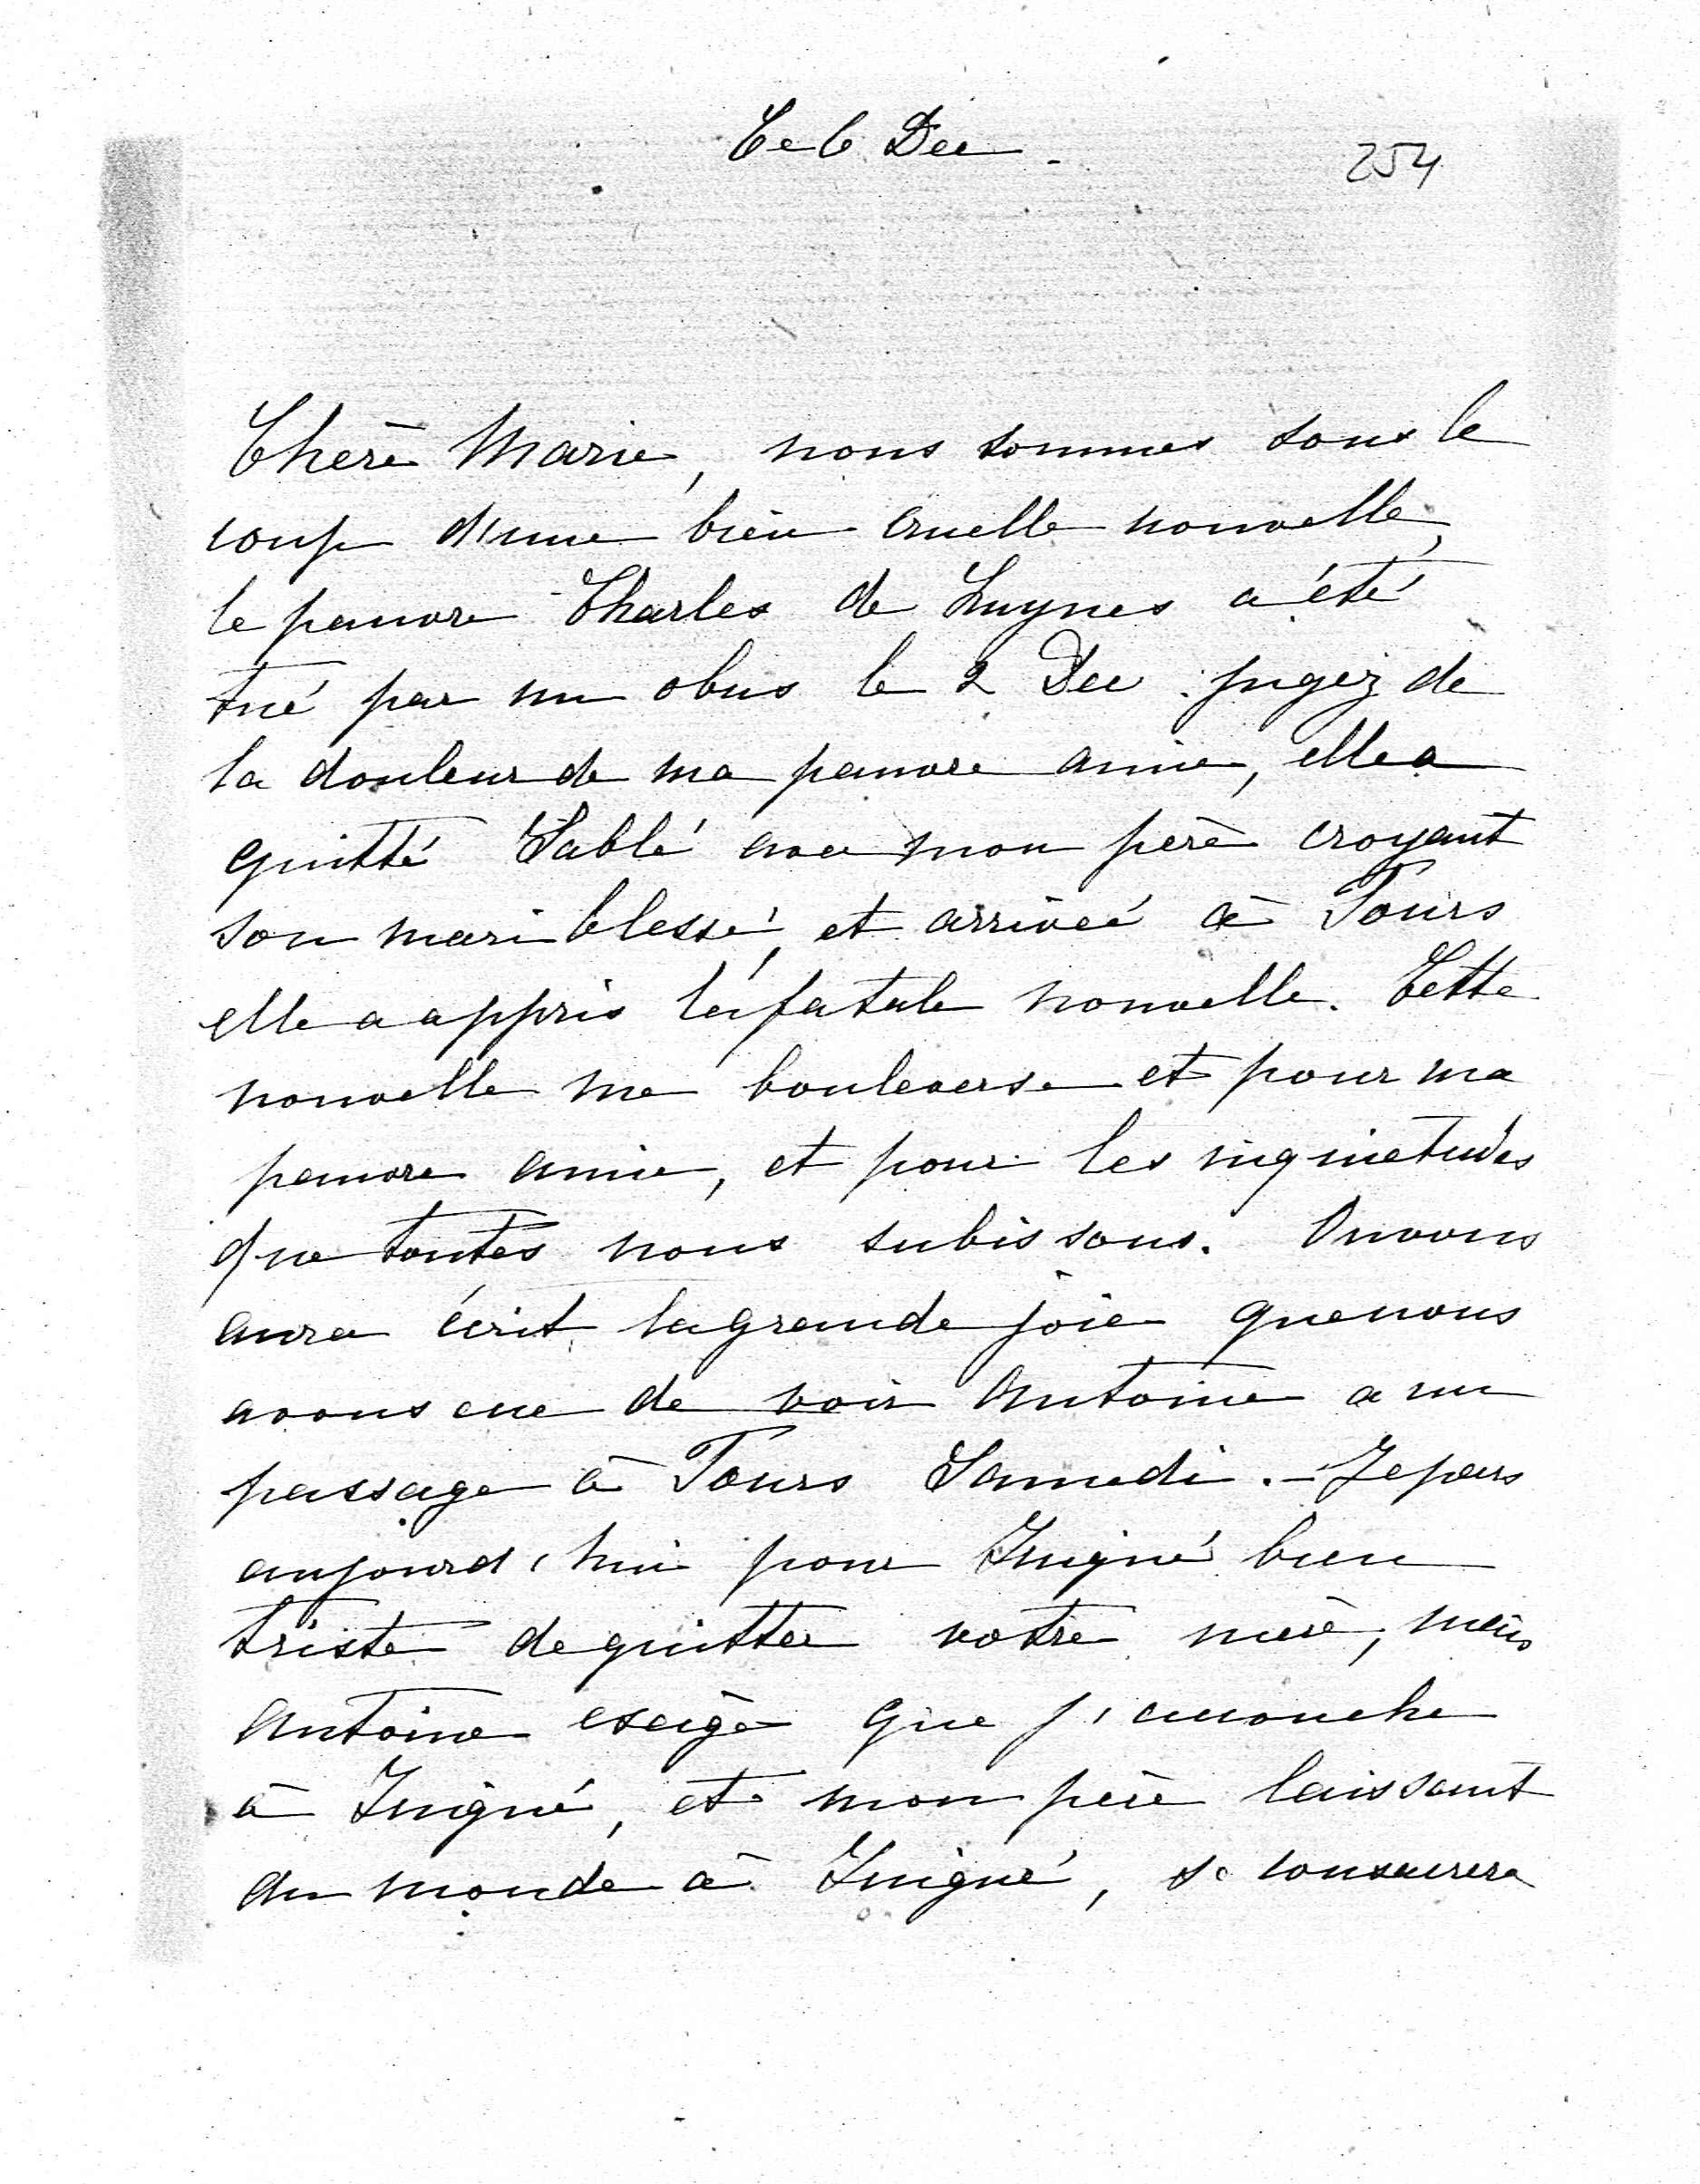 Ce 6 Dec.
254
Chère Marie, nous sommes sous le
coup d'une bien cruelle nouvelle,
le pauvre Charles de Luynes a été
tué par un obus le 2 Dec. jugez de
la douleur de ma pauvre amie, elle a
quitté Sablé avec mon père croyant
son mari blessé, et arrivée à Tours
elle a appris la fatale nouvelle. Cette
nouvelle me bouleverse et pour ma
pauvre amie, et pour les inquietudes
que toutes nous subissons. On vous
aura écrit la grande joie que nous
avons eue de voir Antoine a un
passage à Tours Samedi. - Je pars
aujourd'hui pour Juigné bien
triste de quitter votre mère, mais
Antoine exige que j'accouche
à Juigné, et mon père laissant
du monde à Juigné, se consacrera